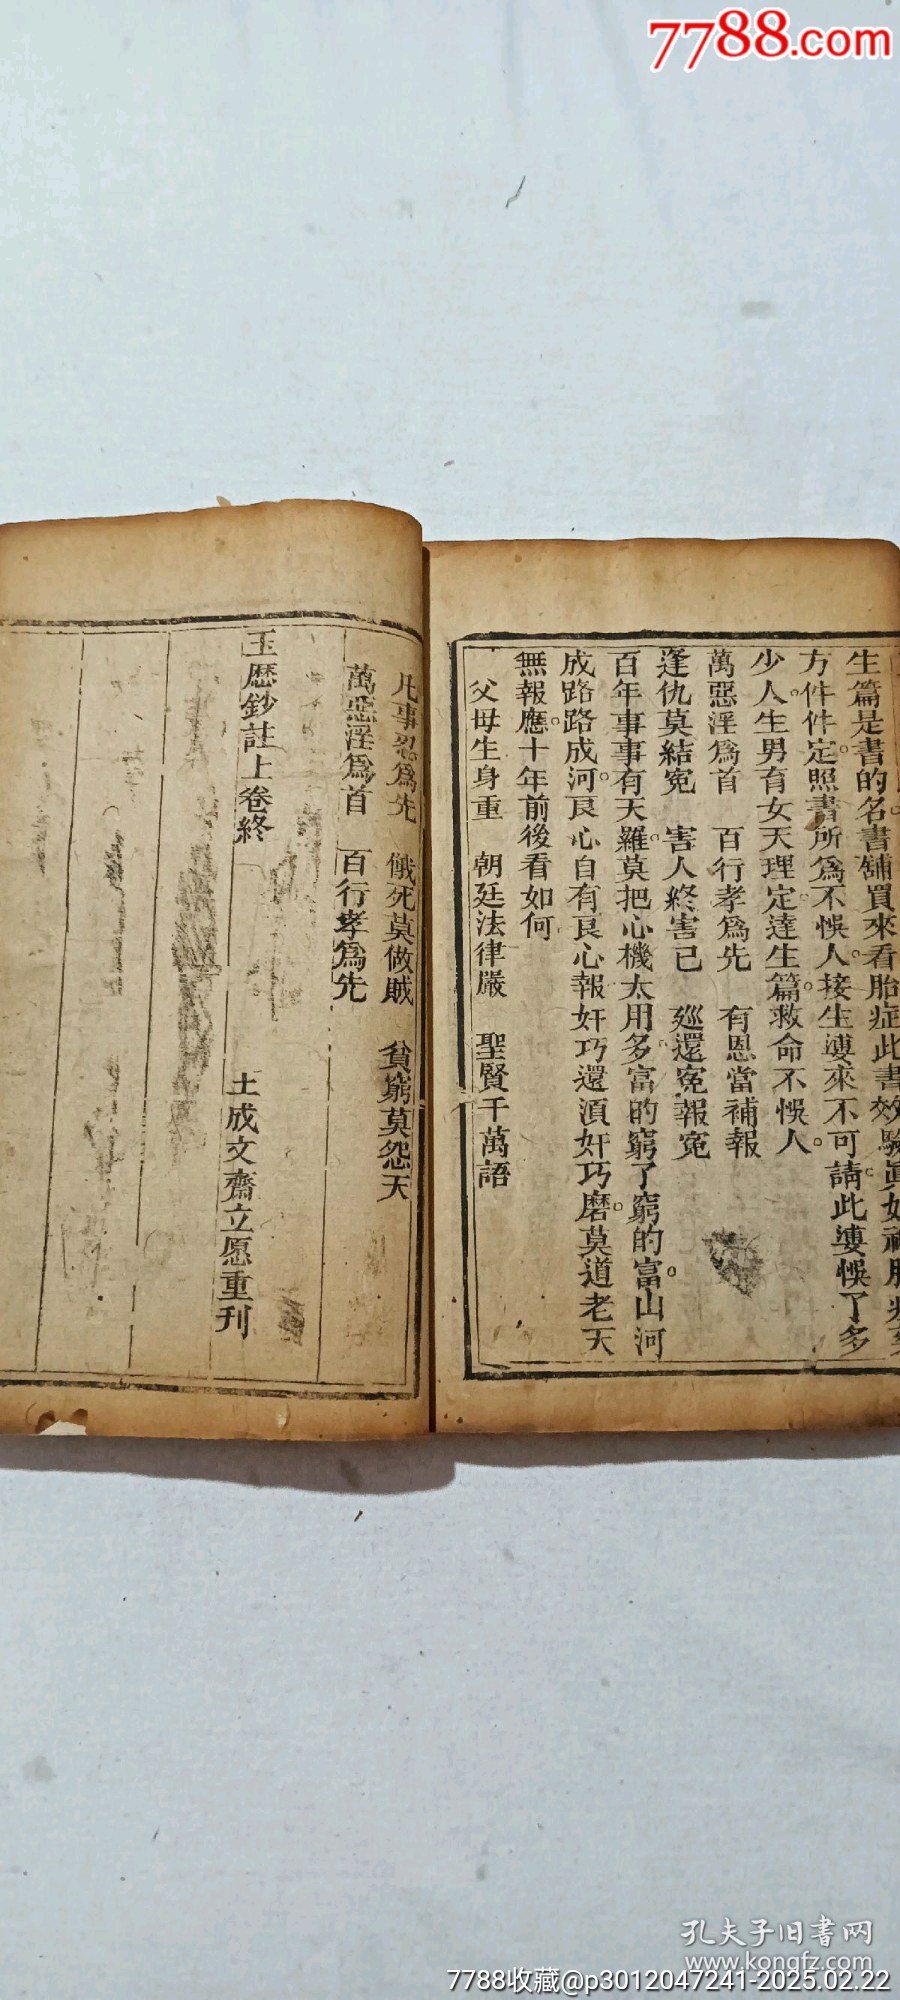 7788.com
生篇是書的名書舖買來看胎症此書效驗眞如神胎
方件件定照書所爲不悞人接生婆來不可請此婆悞了多
少人生男育女天理定達生篇救命不悞人
萬惡淫爲首 百行孝爲先 有恩當補報
逢仇莫結寃 害人終害己 廵還寃報寃
百年事事有天羅莫把心機太用多富的窮了窮的富山河
成路路成河良心自有良心報奸巧還湏奸巧磨莫道老天
無報應十年前後看如何
父母生身重 朝廷法律嚴 聖賢千萬語
凡事忍爲先 餓死莫做賊 貧窮莫怨天
萬惡淫爲首 百行孝爲先
玉歷鈔註上卷終
土成文齋立愿重刊
孔夫子旧書网
www.kongfz.com
7788收藏@p3012047241-2025.02.22